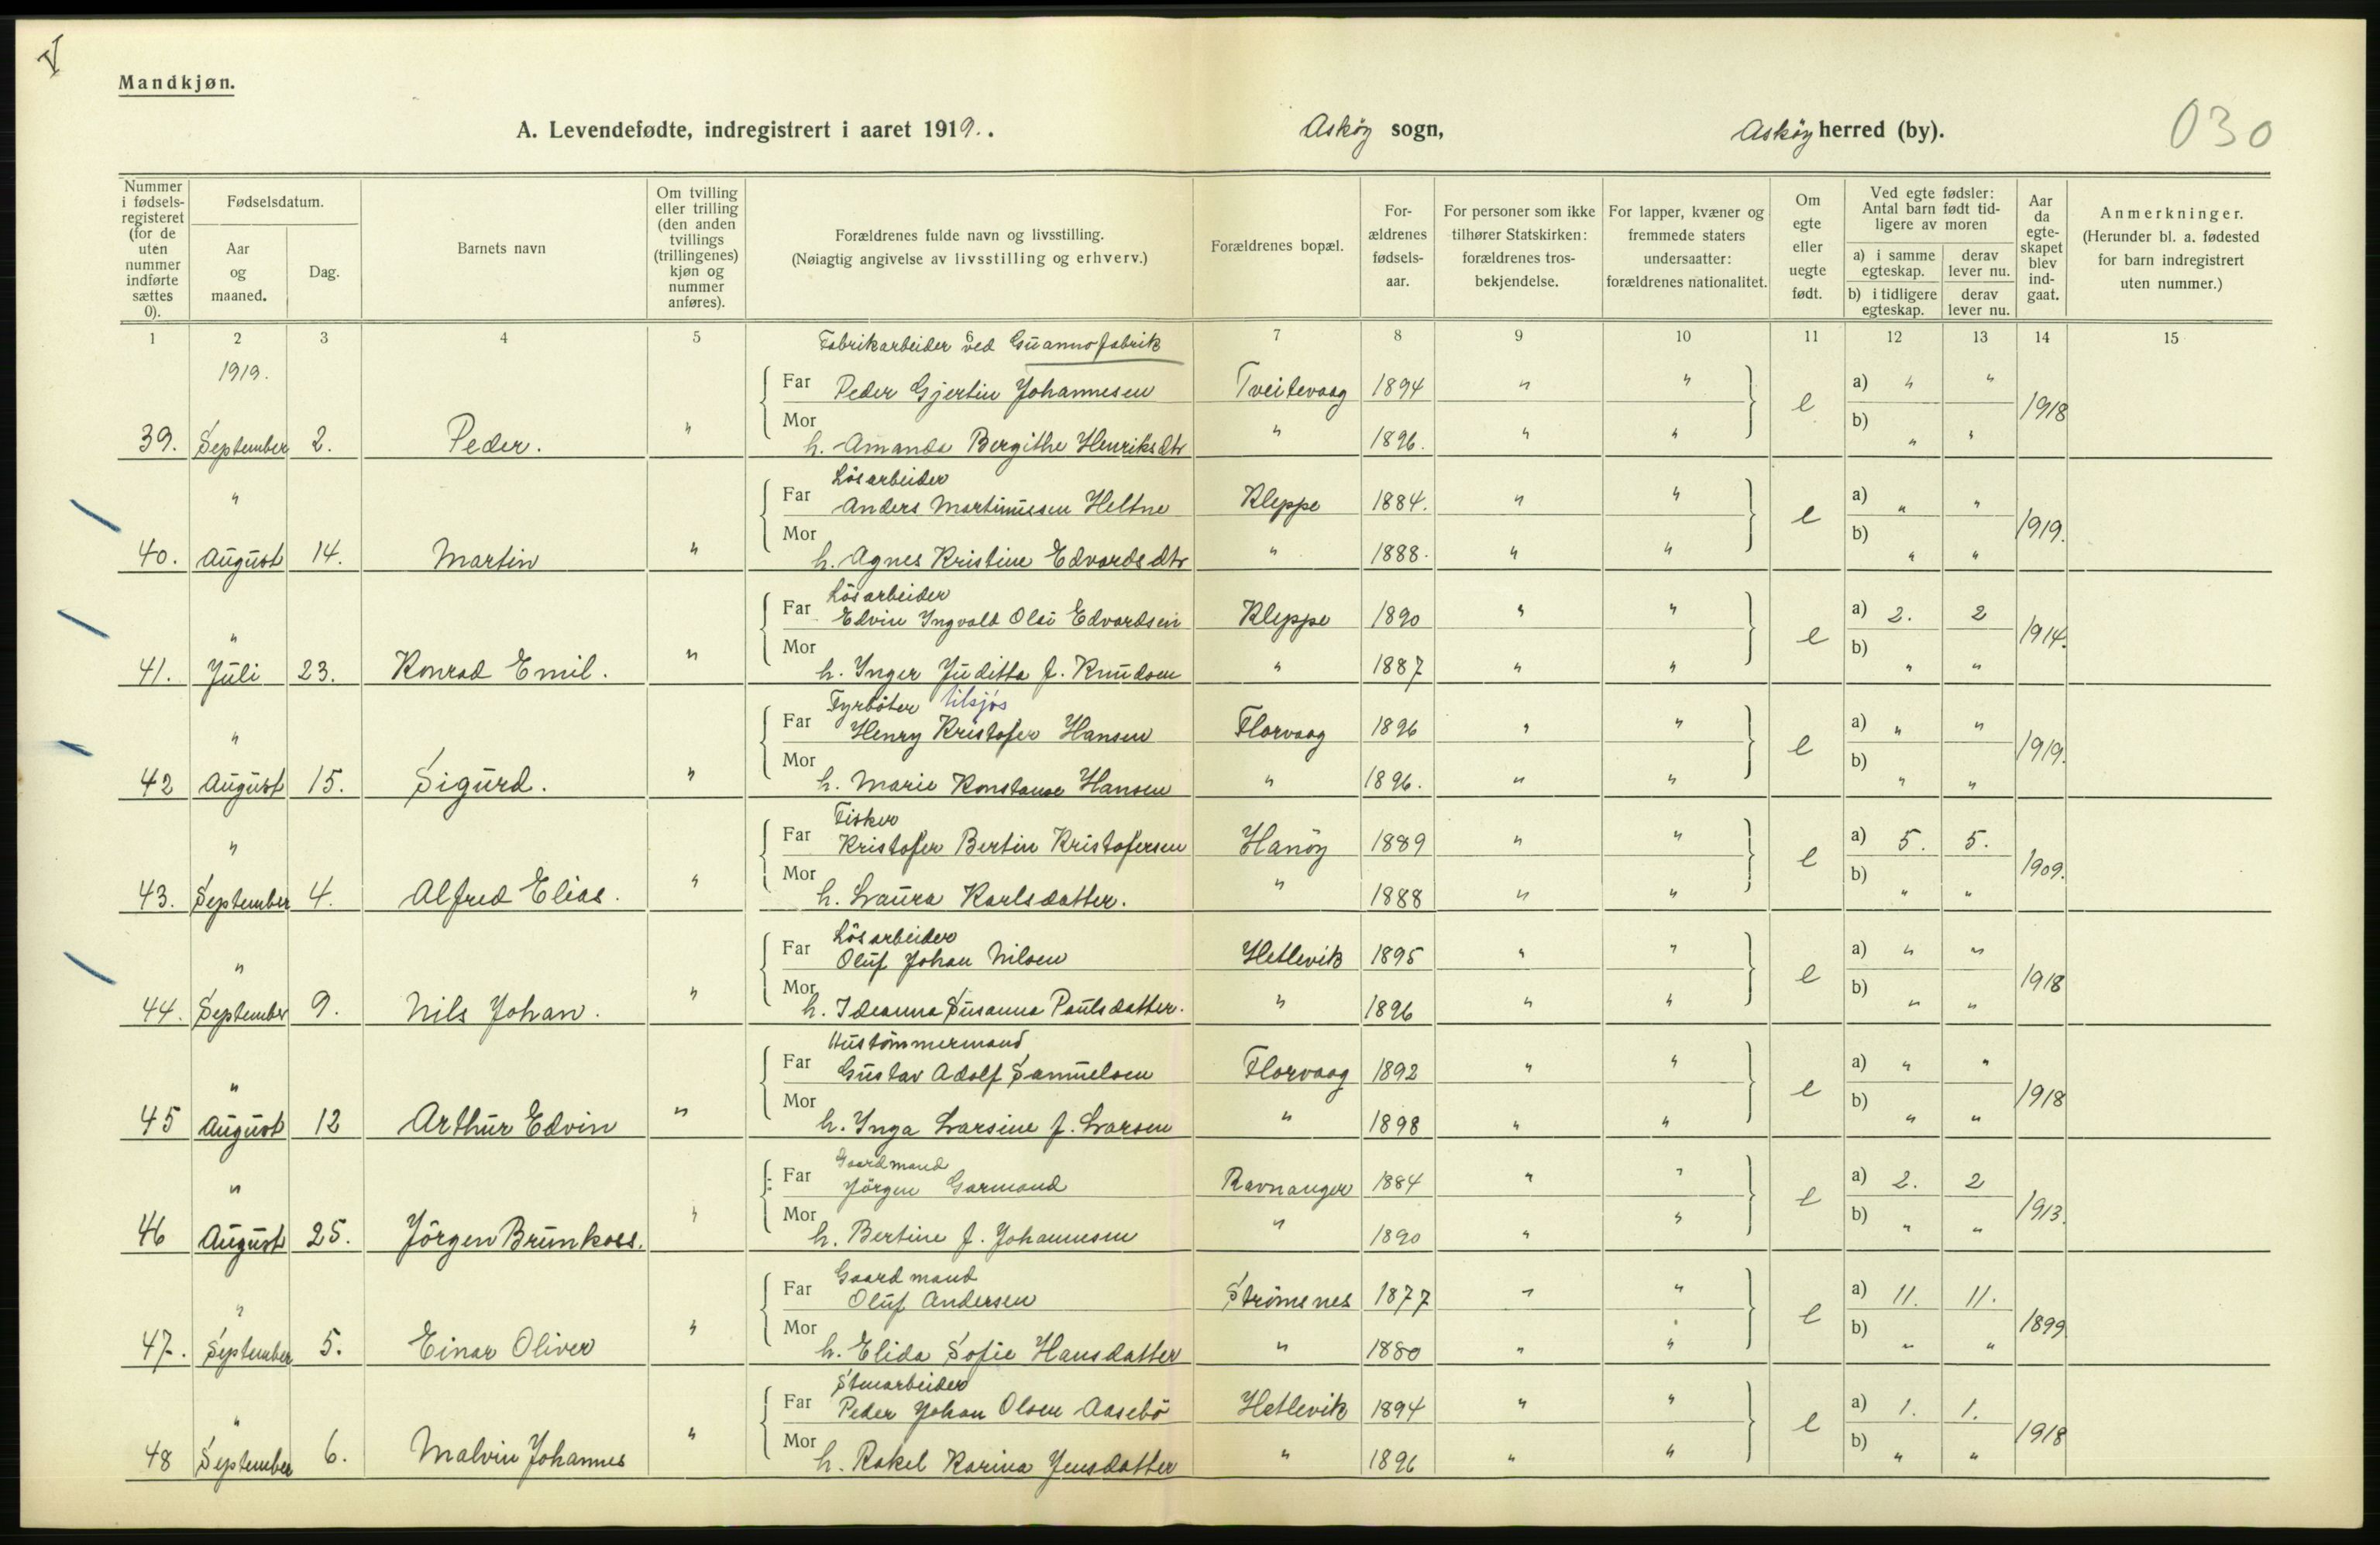 V
Mandkjøn.
A. Levendefødte, indregistrert i aaret 1919. .
Askøy sogn,
Askøy herred (by).
030
Nummer i fødsels-registeret (for de uten nummer indførte sættes 0).
Fødselsdatum.
Aar og maaned.
Dag.
Barnets navn
Om tvilling eller trilling (den anden tvillings (trillingenes) kjøn og nummer anføres).
Forældrenes fulde navn og livsstilling.
(Nøiagtig angivelse av livsstilling og erhverv.)
Forældrenes bopæl.
For-ældrenes fødsels-aar.
For personer som ikke tilhører Statskirken: forældrenes tros-bekjendelse.
For lapper, kvæner og fremmede staters undersaatter: forældrenes nationalitet.
Om egte eller uegte født.
Ved egte fødsler: Antal barn født tid-ligere av moren
a) i samme egteskap. derav lever nu.
b) i tidligere egteskap. derav lever nu.
Aar da egte-skapet blev ind-gaat.
Anmerkninger.
(Herunder bl. a. fødested for barn indregistrert uten nummer.)
1 2 3 4 5 6 7 8 9 10 11 12 13 14 15
Fabrikarbeider ved Guannofabrik
1919.
Far Peder Gjertin Johannesen Tveitevaag 1894 " " e a) " " 1918
39. September 2. Peder. " Mor h. Amanda Bergithe Henriksdtr " 1896. " " b) " "
Løsarbeider
" Far Anders Martinusen Heltne Kleppe 1884. " " e a) " " 1919.
40. August 14. Martin " Mor h. Agnes Kristine Edvardsdtr " 1888. " " b) " "
Løsarbeider
" Far Edvin Ingvald Olai Edvardsen Kleppe 1890 " " e a) 2. 2 1914.
41. Juli 23. Konrad Emil. " Mor h. Inger Juditta f. Knudsen " 1887 " " b) " "
Fyrbøter tilsjøs
" Far Henry Kristofer Hansen Florvaag 1896 " " e a) " " 1919.
42 August 15. Sigurd. " Mor h. Marie Konstanse Hansen " 1896. " " b) " "
Fisker
" Far Kristofer Bertin Kristofersen Hanøy 1889 " " e a) 5. 5. 1909.
43. September 4. Alfred Elias. " Mor h. Laura Karlsdatter. " 1888 " " b) " "
Løsarbeider
" Far Oluf Johan Nilsen Hetlevik 1895 " " e a) " " 1918
44. September 9. Nils Johan. " Mor h. Ideanna Susanna Paulsdatter. " 1896 " " b) " "
Hustømmermand
" Far Gustav Adolf Samuelsen Florvaag 1892 " " e a) " " 1918
45 August 12 Arthur Edvin " Mor h. Inga Larsine f. Larsen " 1898 " " b) " "
Gaardmand
" Far Jørgen Garmand Ravnanger 1884 " " e a) 2. 2 1913.
46 August 25. Jørgen Brunkoss. " Mor h. Bertine f. Johannesen " 1890 " " b) " "
Gaardmand
" Far Oluf Andersen Strømsnes 1877 " " e a) 11. 11. 1899
47. September 5. Einar Oliver " Mor h. Elida Sofie Hansdatter " 1880 " " b) " "
Stenarbeider
" Far Peder Johan Olsen Aasebø Hetlevik 1894 " " e a) 1. 1. 1918
48 September 6. Malvin Johannes " Mor h. Rakel Karina Jensdatter " 1896 " " b) " "